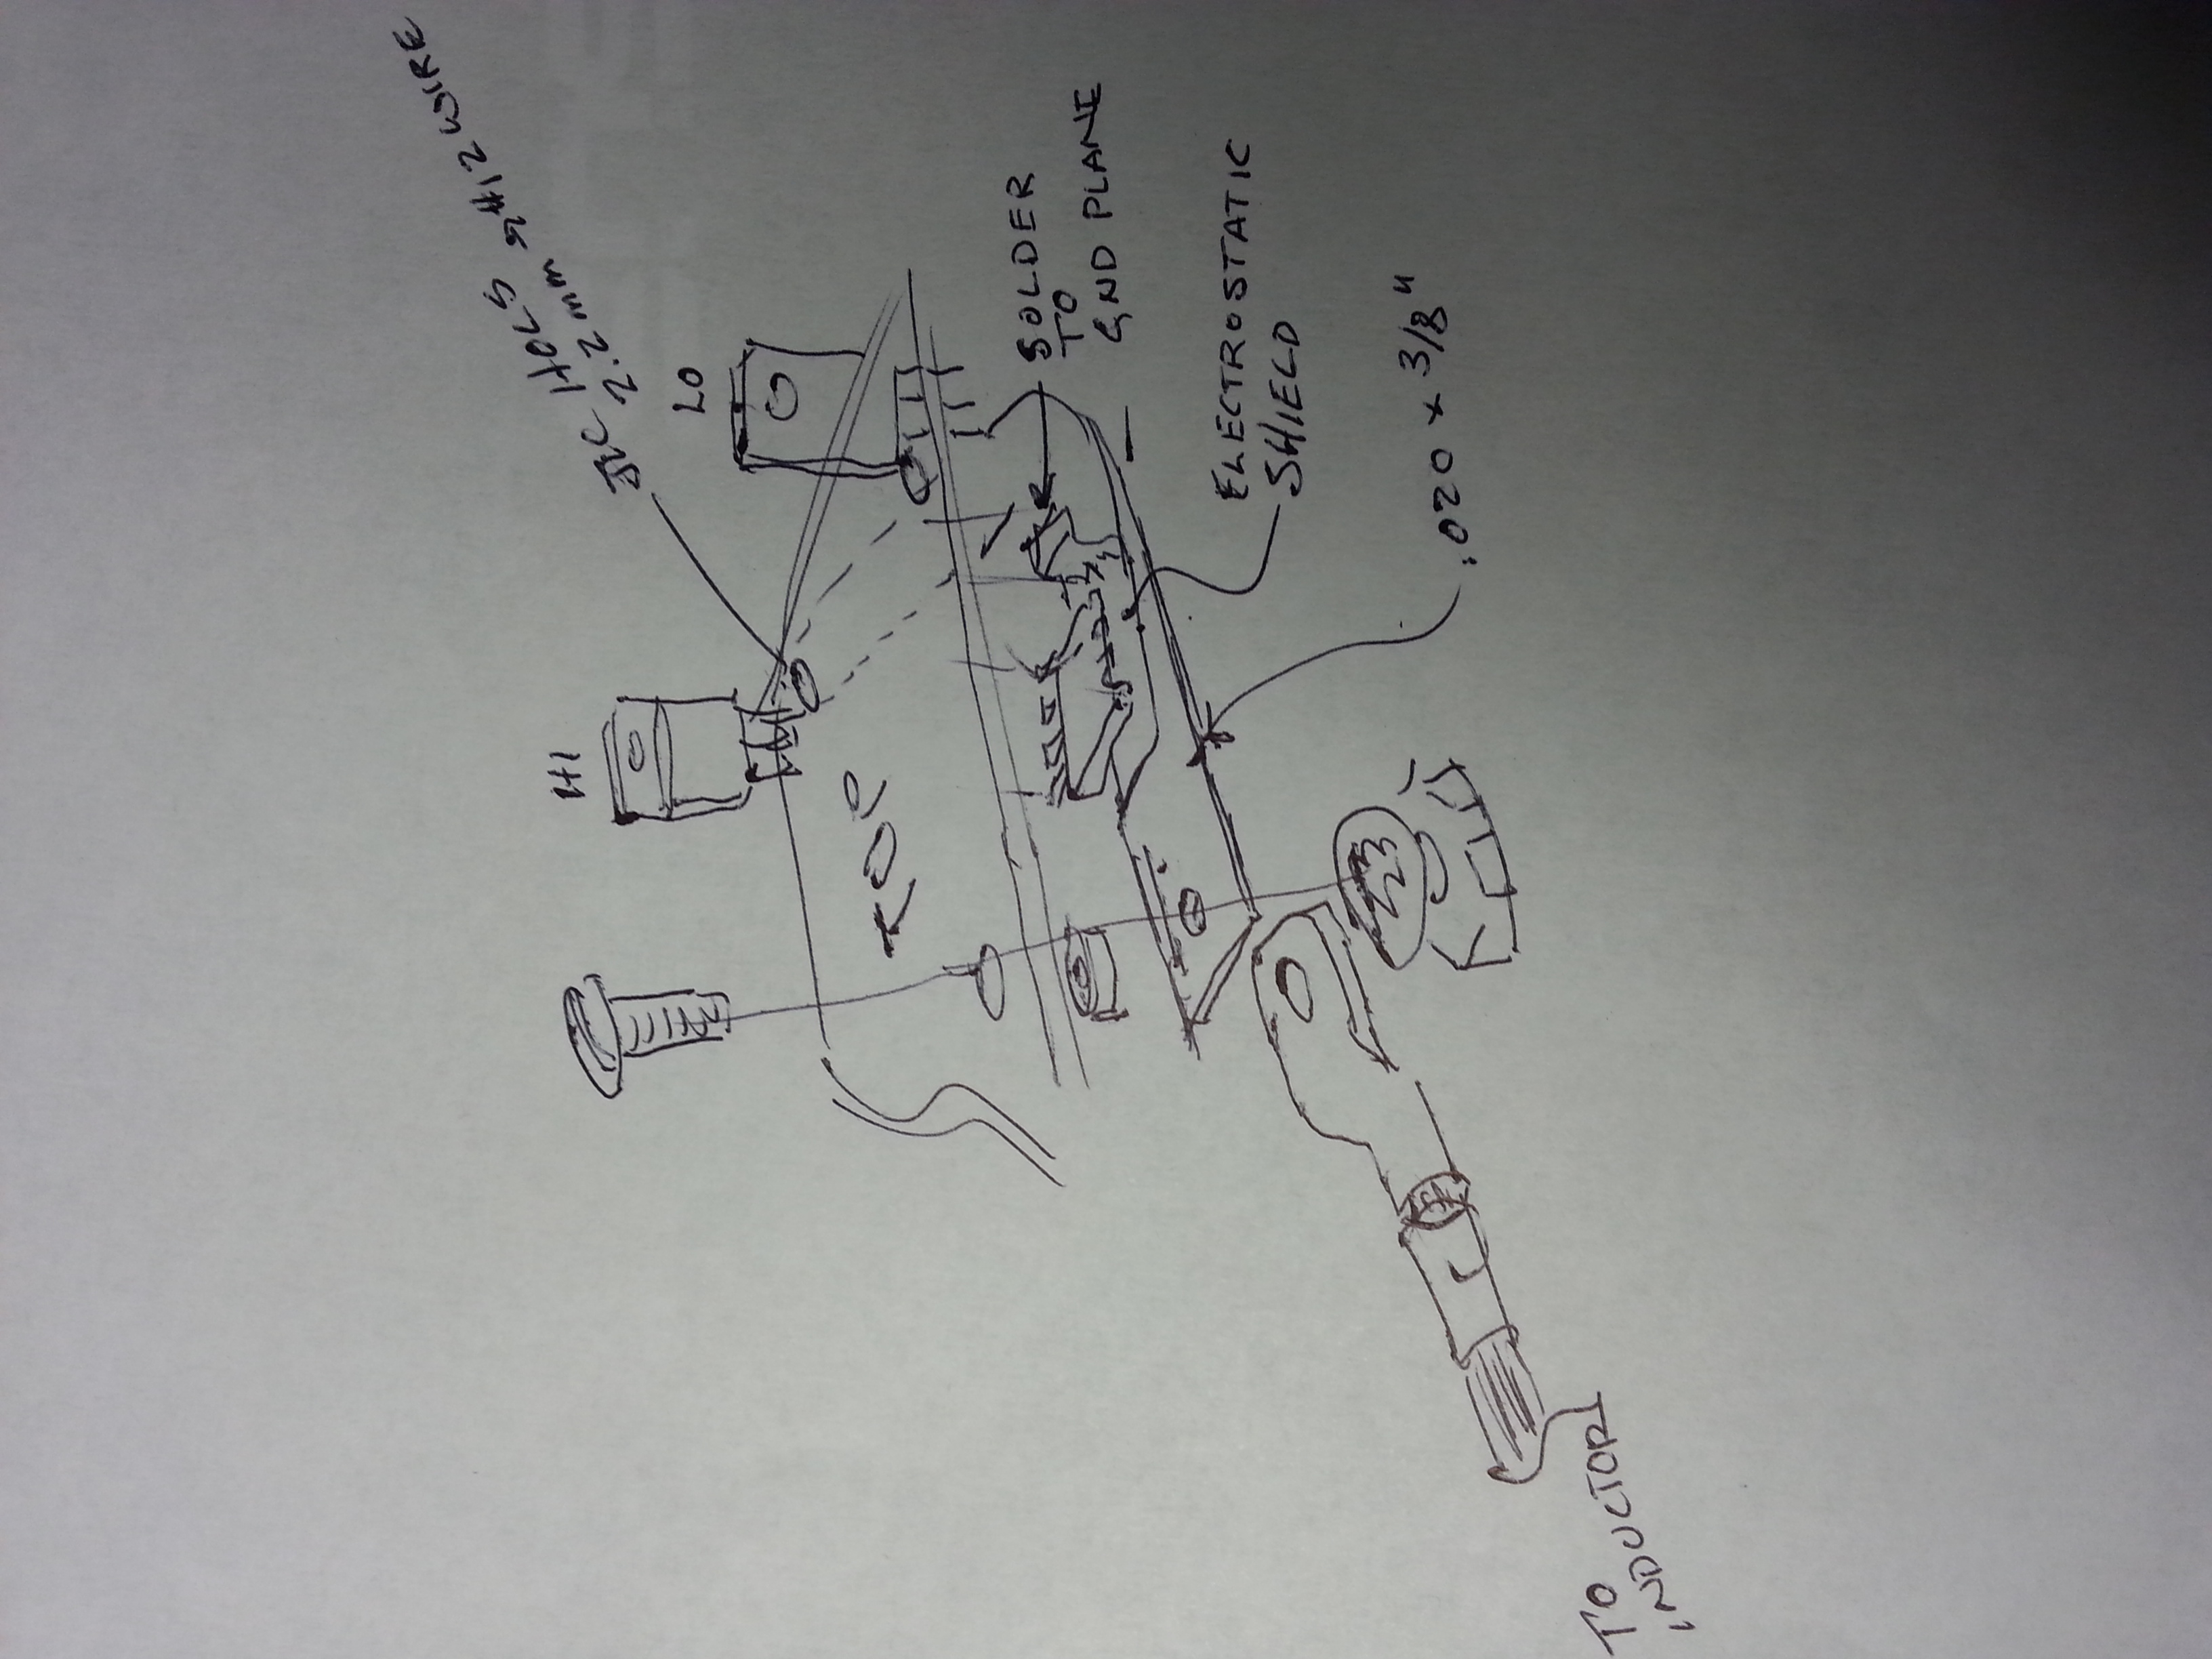 HOLS 5#12 WIRE
2.2 mm
HI
LO
TOP
SOLDER
TO
GND PLANE
ELECTROSTATIC
SHIELD
.020 x 3/8"
TO
INDUCTOR